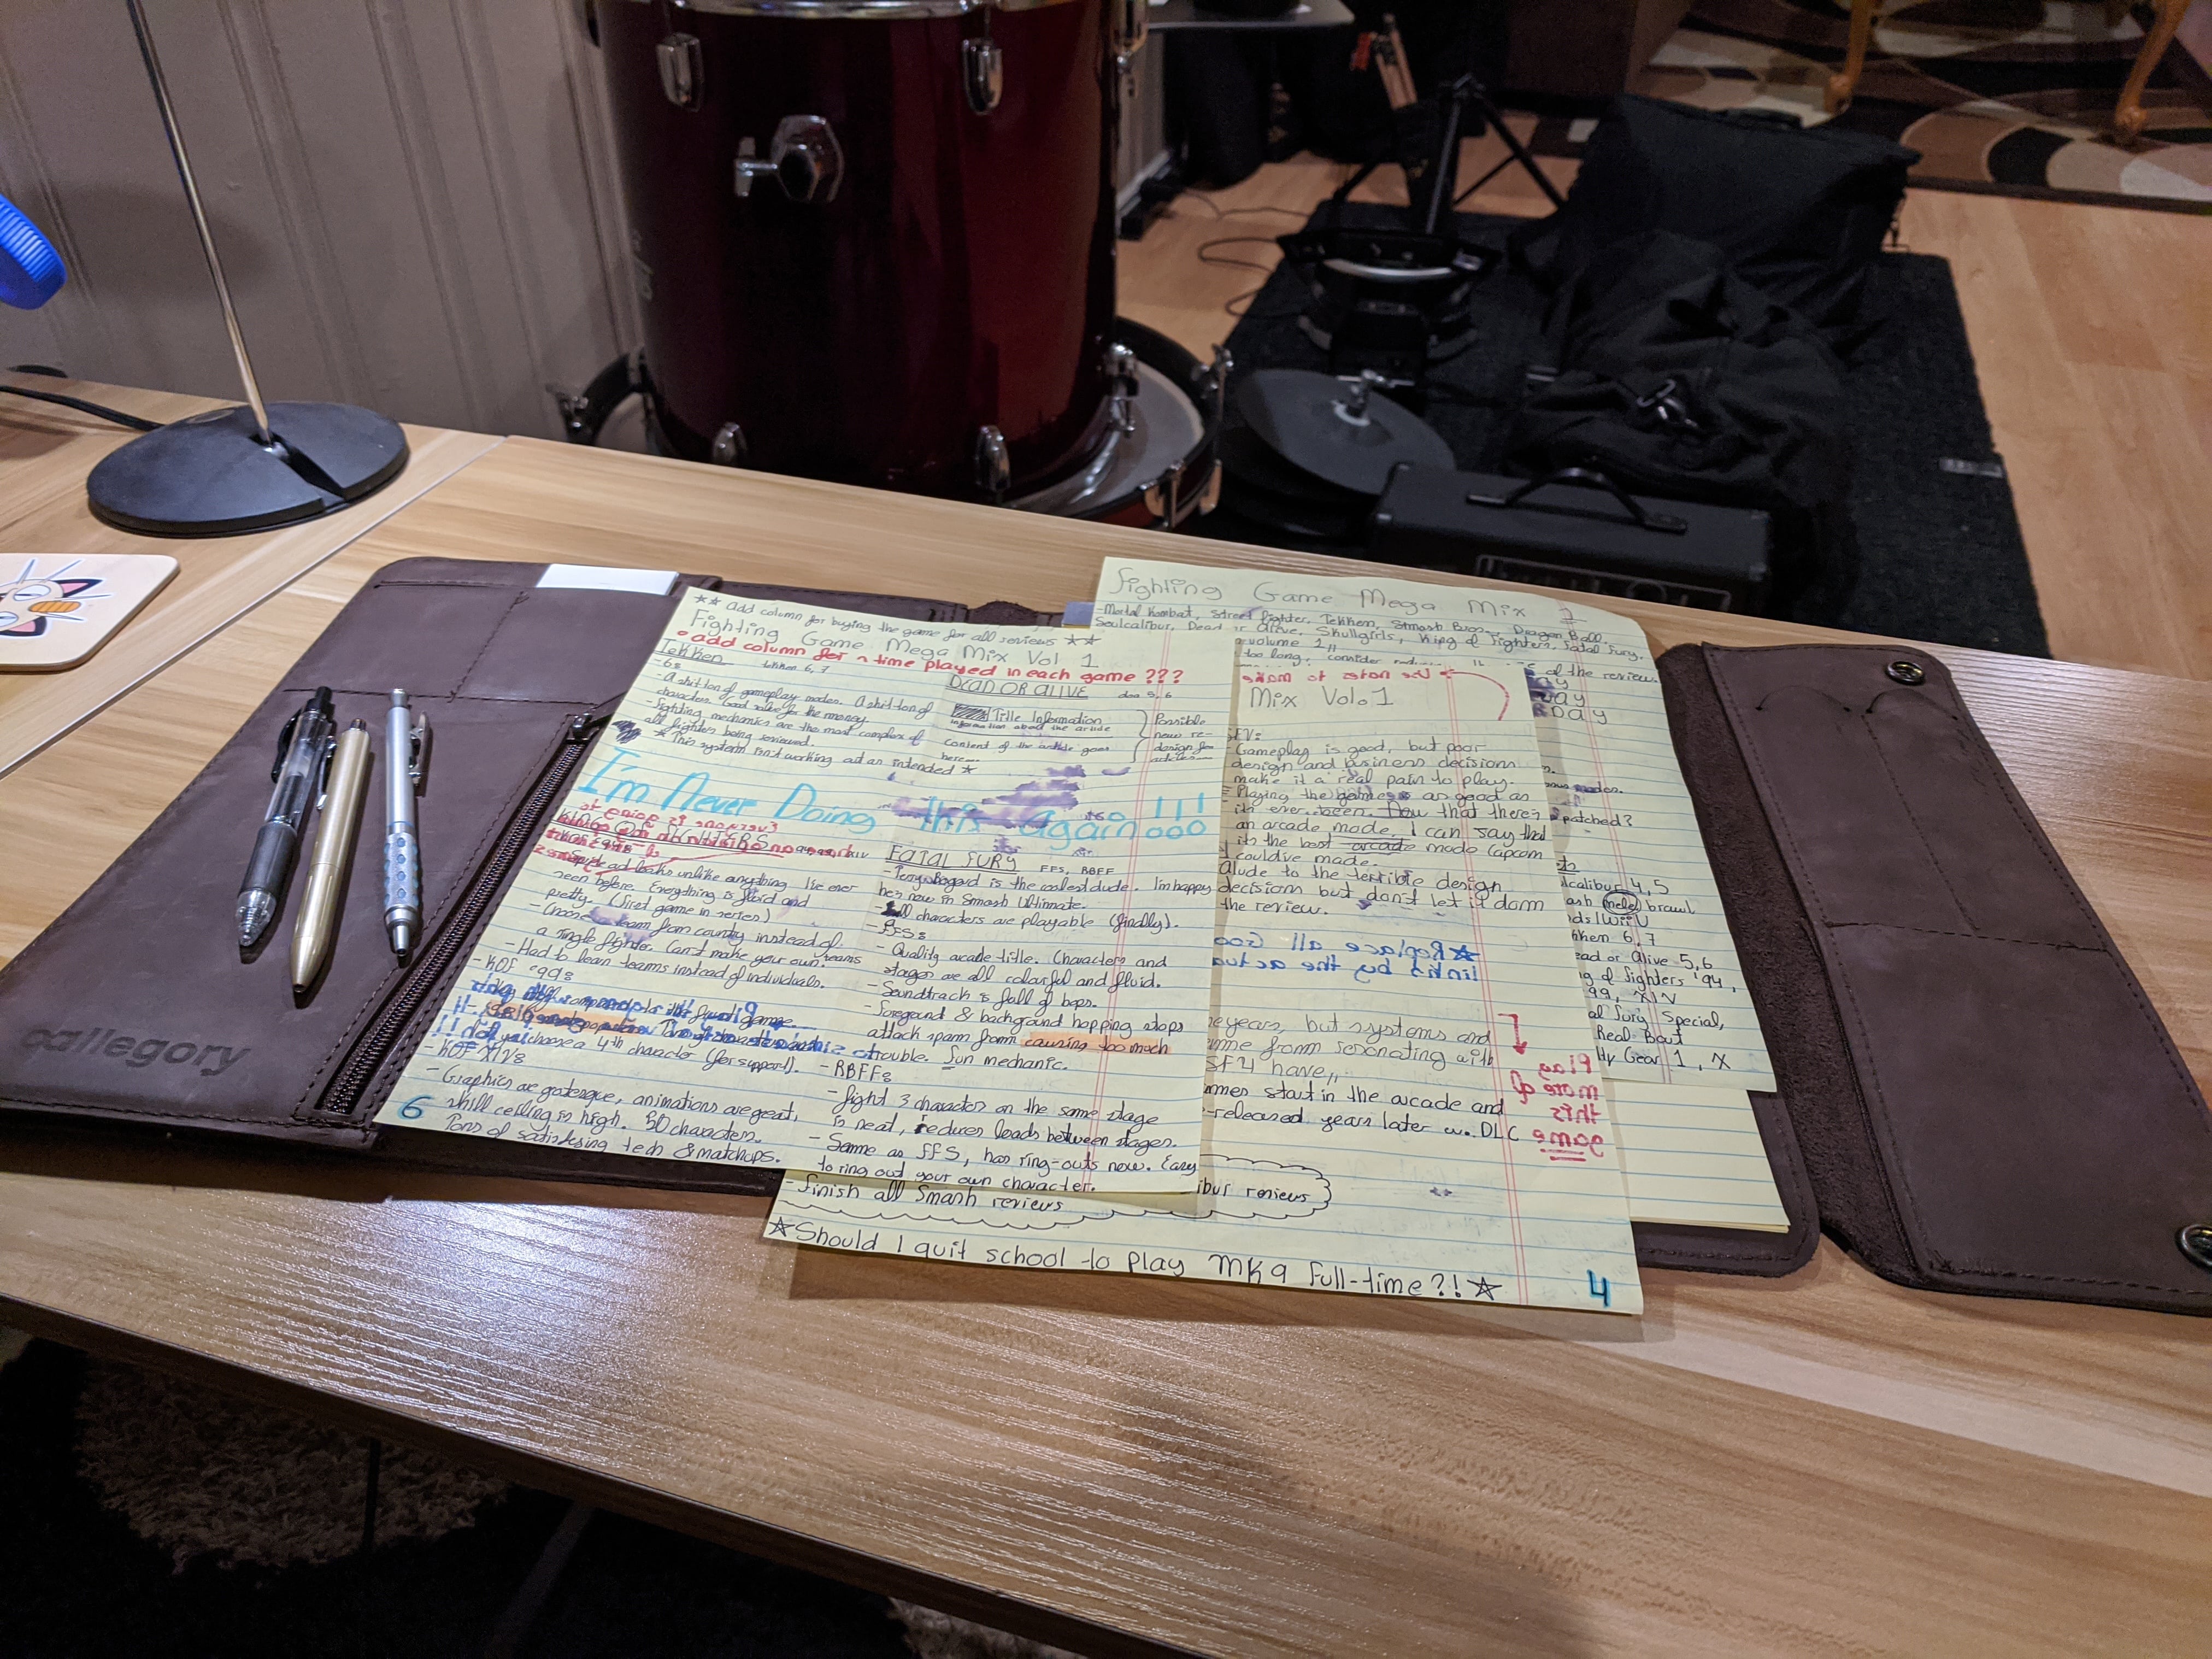 ★★ Add column for buying the game for all reviews ★★
Fighting Game Mega Mix Vol 1
• add column for time played in each game ???
Tekken
tekken 6, 7
- 6:
- A shit ton of gameplay modes. A shit ton of
characters. Good value for the money.
- Fighting mechanics are the most complex of
all fighters being reviewed.
★ This system isn't working out as intended ★
DEAD OR ALIVE
doa 5, 6
Title Information
Information about the article
Content of the article goes
here...
Possible
new re-
design for
articles
I'm Never Doing This Again!!!
KING OF FIGHTERS
looks unlike anything I've ever
seen before. Everything is fluid and
pretty. (first game in series)
- Choose a team from country instead of
a single fighter. Can't make your own teams
- Had to learn teams instead of individuals.
- KOF '99:
you choose a 4th character (for support).
- KOF XIV:
- Graphics are grotesque, animations are great,
skill ceiling is high. 50 characters.
Tons of satisfying tech & matchups.
6
FATAL FURY
FFS, RBFF
- Terry Bogard is the coolest dude. I'm happy
he's now in Smash Ultimate.
- All characters are playable (finally).
- FFS:
- Quality arcade title. Characters and
stages are all colorful and fluid.
- Soundtrack is full of bops.
- Foreground & background hopping stops
attack spam from causing too much
trouble. Fun mechanic.
- RBFF:
- Fight 3 characters on the same stage
is neat, reduces loads between stages.
- Same as FFS, has ring-outs now. Easy
to ring out your own character.
Fighting Game Mega Mix 1
- Mortal Kombat, Street Fighter, Tekken, Smash Bros., Dragon Ball,
Soulcalibur, Dead or Alive, Skullgirls, King of Fighters, Fatal Fury.
volume 1,,
too long, consider
of the review.
Mix Vol. 1
SFV:
- Gameplay is good, but poor
design and business decisions
make it a real pain to play.
- Playing the game is as good as
it's ever been. Now that there's
an arcade mode, I can say that
it's the best arcade mode Capcom
could've made.
Alude to the terrible design
decisions but don't let it dom
the review.
★ Replace all Goo
links by the actua
years, but systems and
me from resonating with
SF4 have,,
mes start in the arcade and
-released years later w. DLC
Play
more of
this
game
ibur reviews
- Finish all Smash reviews
★ Should I quit school to play MK9 Full-time?!★
4
patched?
lcalibur 4, 5
ash melee brawl
ds/WiiU
kken 6, 7
ead or Alive 5, 6
g of Fighters '94,
99, XIV
al Fury Special,
Real Bout
lty Gear 1, X
allegory